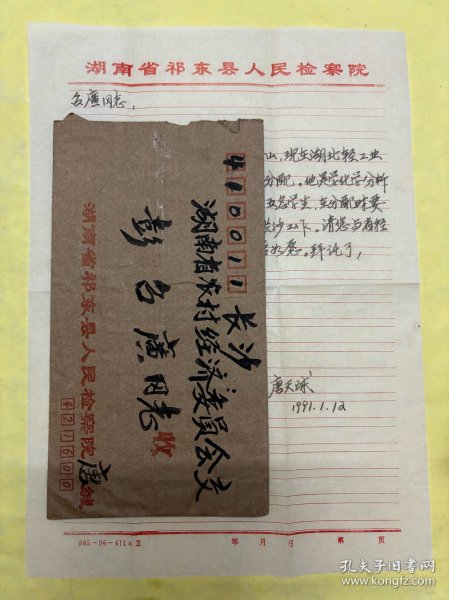 湖南省祁东县人民检察院
名广同志:
山,现在湖北轻工业
分配。他是学化学分析
五名学生,在分配时要
长沙工作。请您与有
拜托了,
唐天球
1991.1.12
410011
长沙
湖南省农村经济委员会交
彭名广同志收
湖南省祁东县人民检察院唐缄
421600
085-06-411×2
年 月 日 第 页
孔夫子旧书网